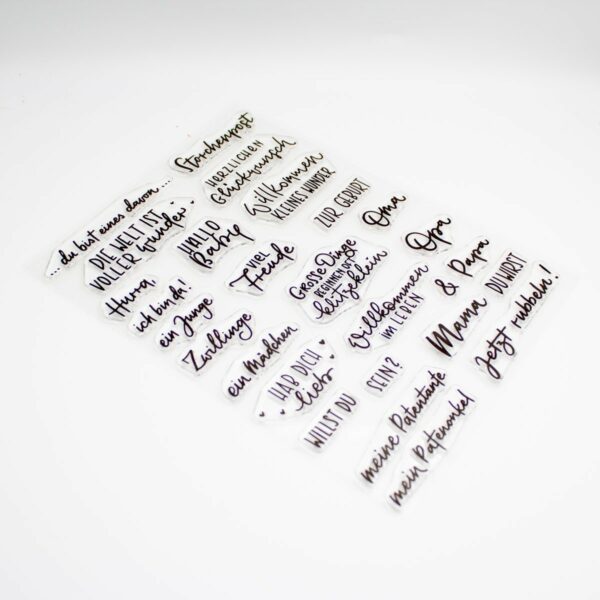 Storchenpost
HERZLICHEN
Glückwunsch
Willkommen
KLEINES WUNDER
ZUR GEBURT
Oma
Opa
& Papa
DU WIRST
... du bist eines davon ...
DIE WELT IST
VOLLER Wunder
HALLO
Baby
VIEL
Freude
GROßE Dinge
BEGINNEN OFT
klitzeklein
Willkommen
im LEBEN
Mama
Jetzt rubbeln!
Hurra
ich bin da!
ein Junge
Zwillinge
ein Mädchen
HAB DICH
lieb
WILLST DU
SEIN?
meine Patentante
mein Patenonkel